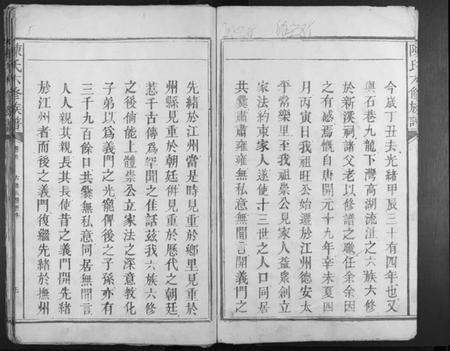 陳氏六修族譜
今歲丁丑去光緒甲辰三十有四年也又
與石巷九龍下灣高湖流洰之六族六修
於新漢祠諸父老以修譜之職任余余因
之有感焉慨自唐開元十九年辛未夏四
月丙寅日我祖旺公始遷於江州德安太
平常樂里至我祖崇公見家人益眾創立
家法約束家人遂使十三世之人口同居
共爨肅肅雍雍無私意無閒言開義門之
先緒於江州當是時見重於鄉里見重於
州縣見重於朝廷併見重於歷代之朝廷
惹千古傳為罕聞之佳話玆我六族六修
之後倘能上體崇公立家法之深意敎化
子弟以為義門之先寵俾後之子孫亦有
三千九百餘口共爨無私意同居無閒言
人人親其親長其長使昔之義門開先緒
於江州者而後之義門復繼先緒於撫州
陳氏六修族譜